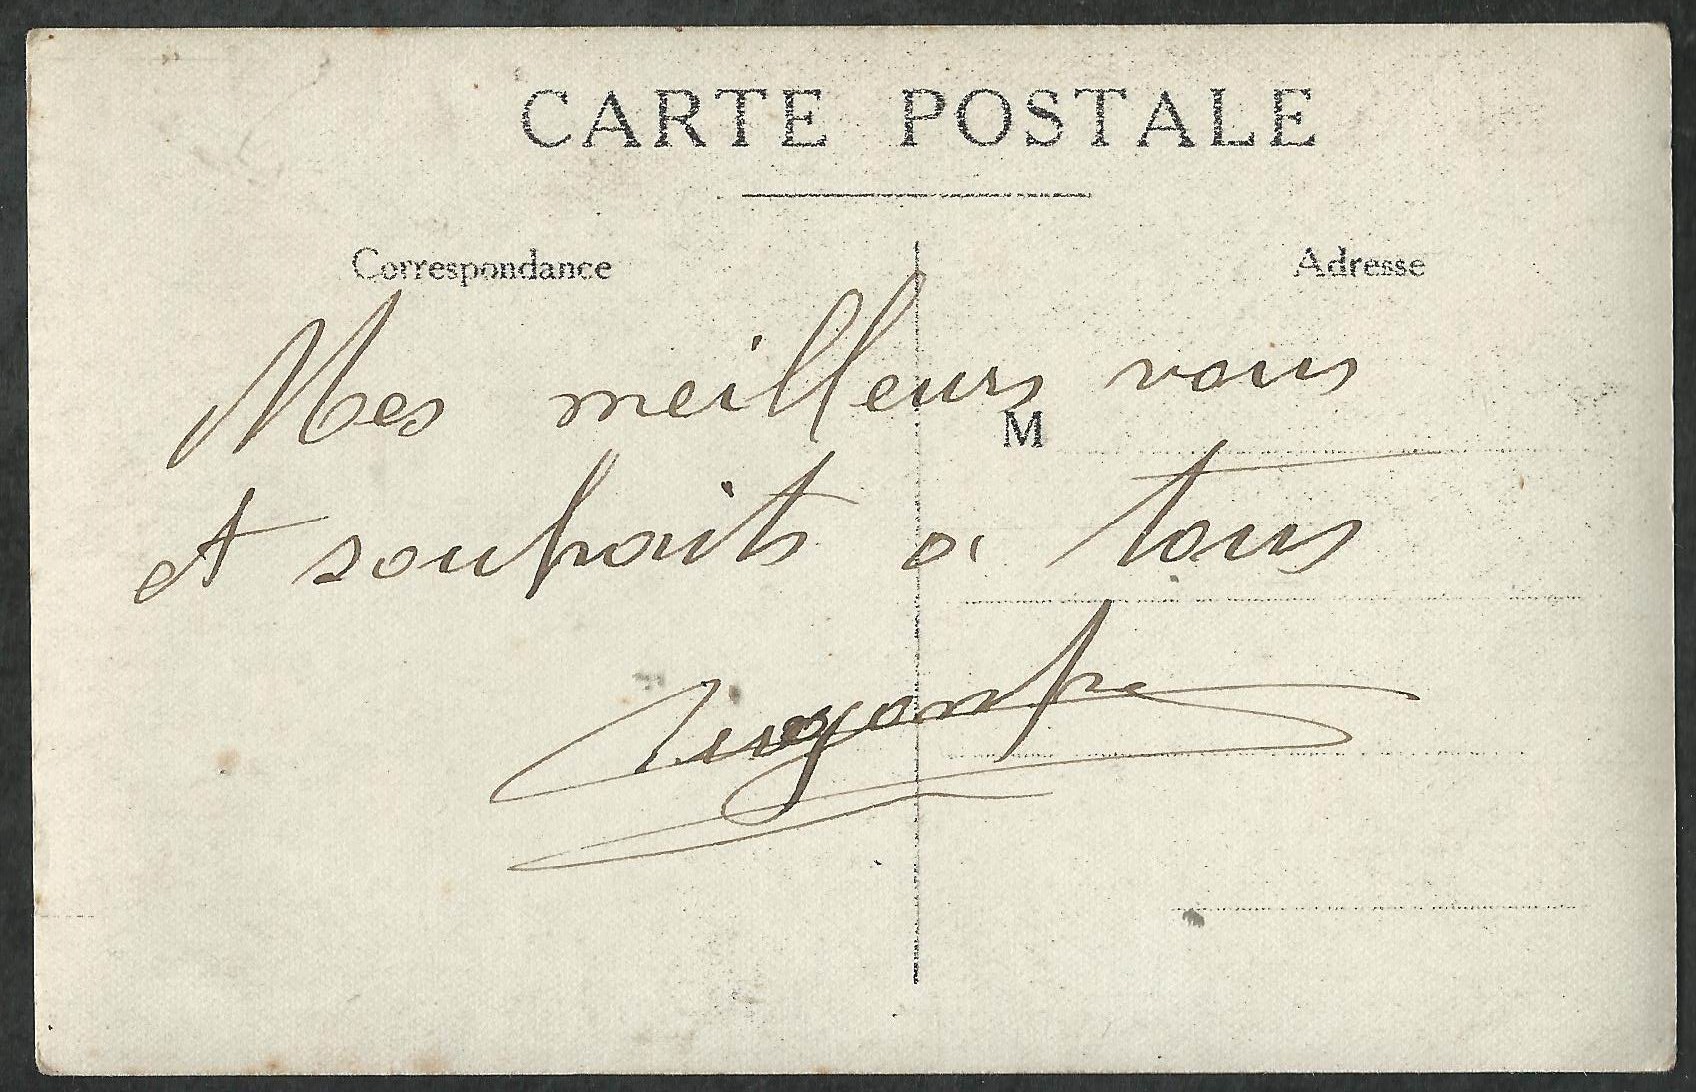 CARTE POSTALE
Correspondance
Adresse
Mes meilleurs vœus
M
et souhaits à tous